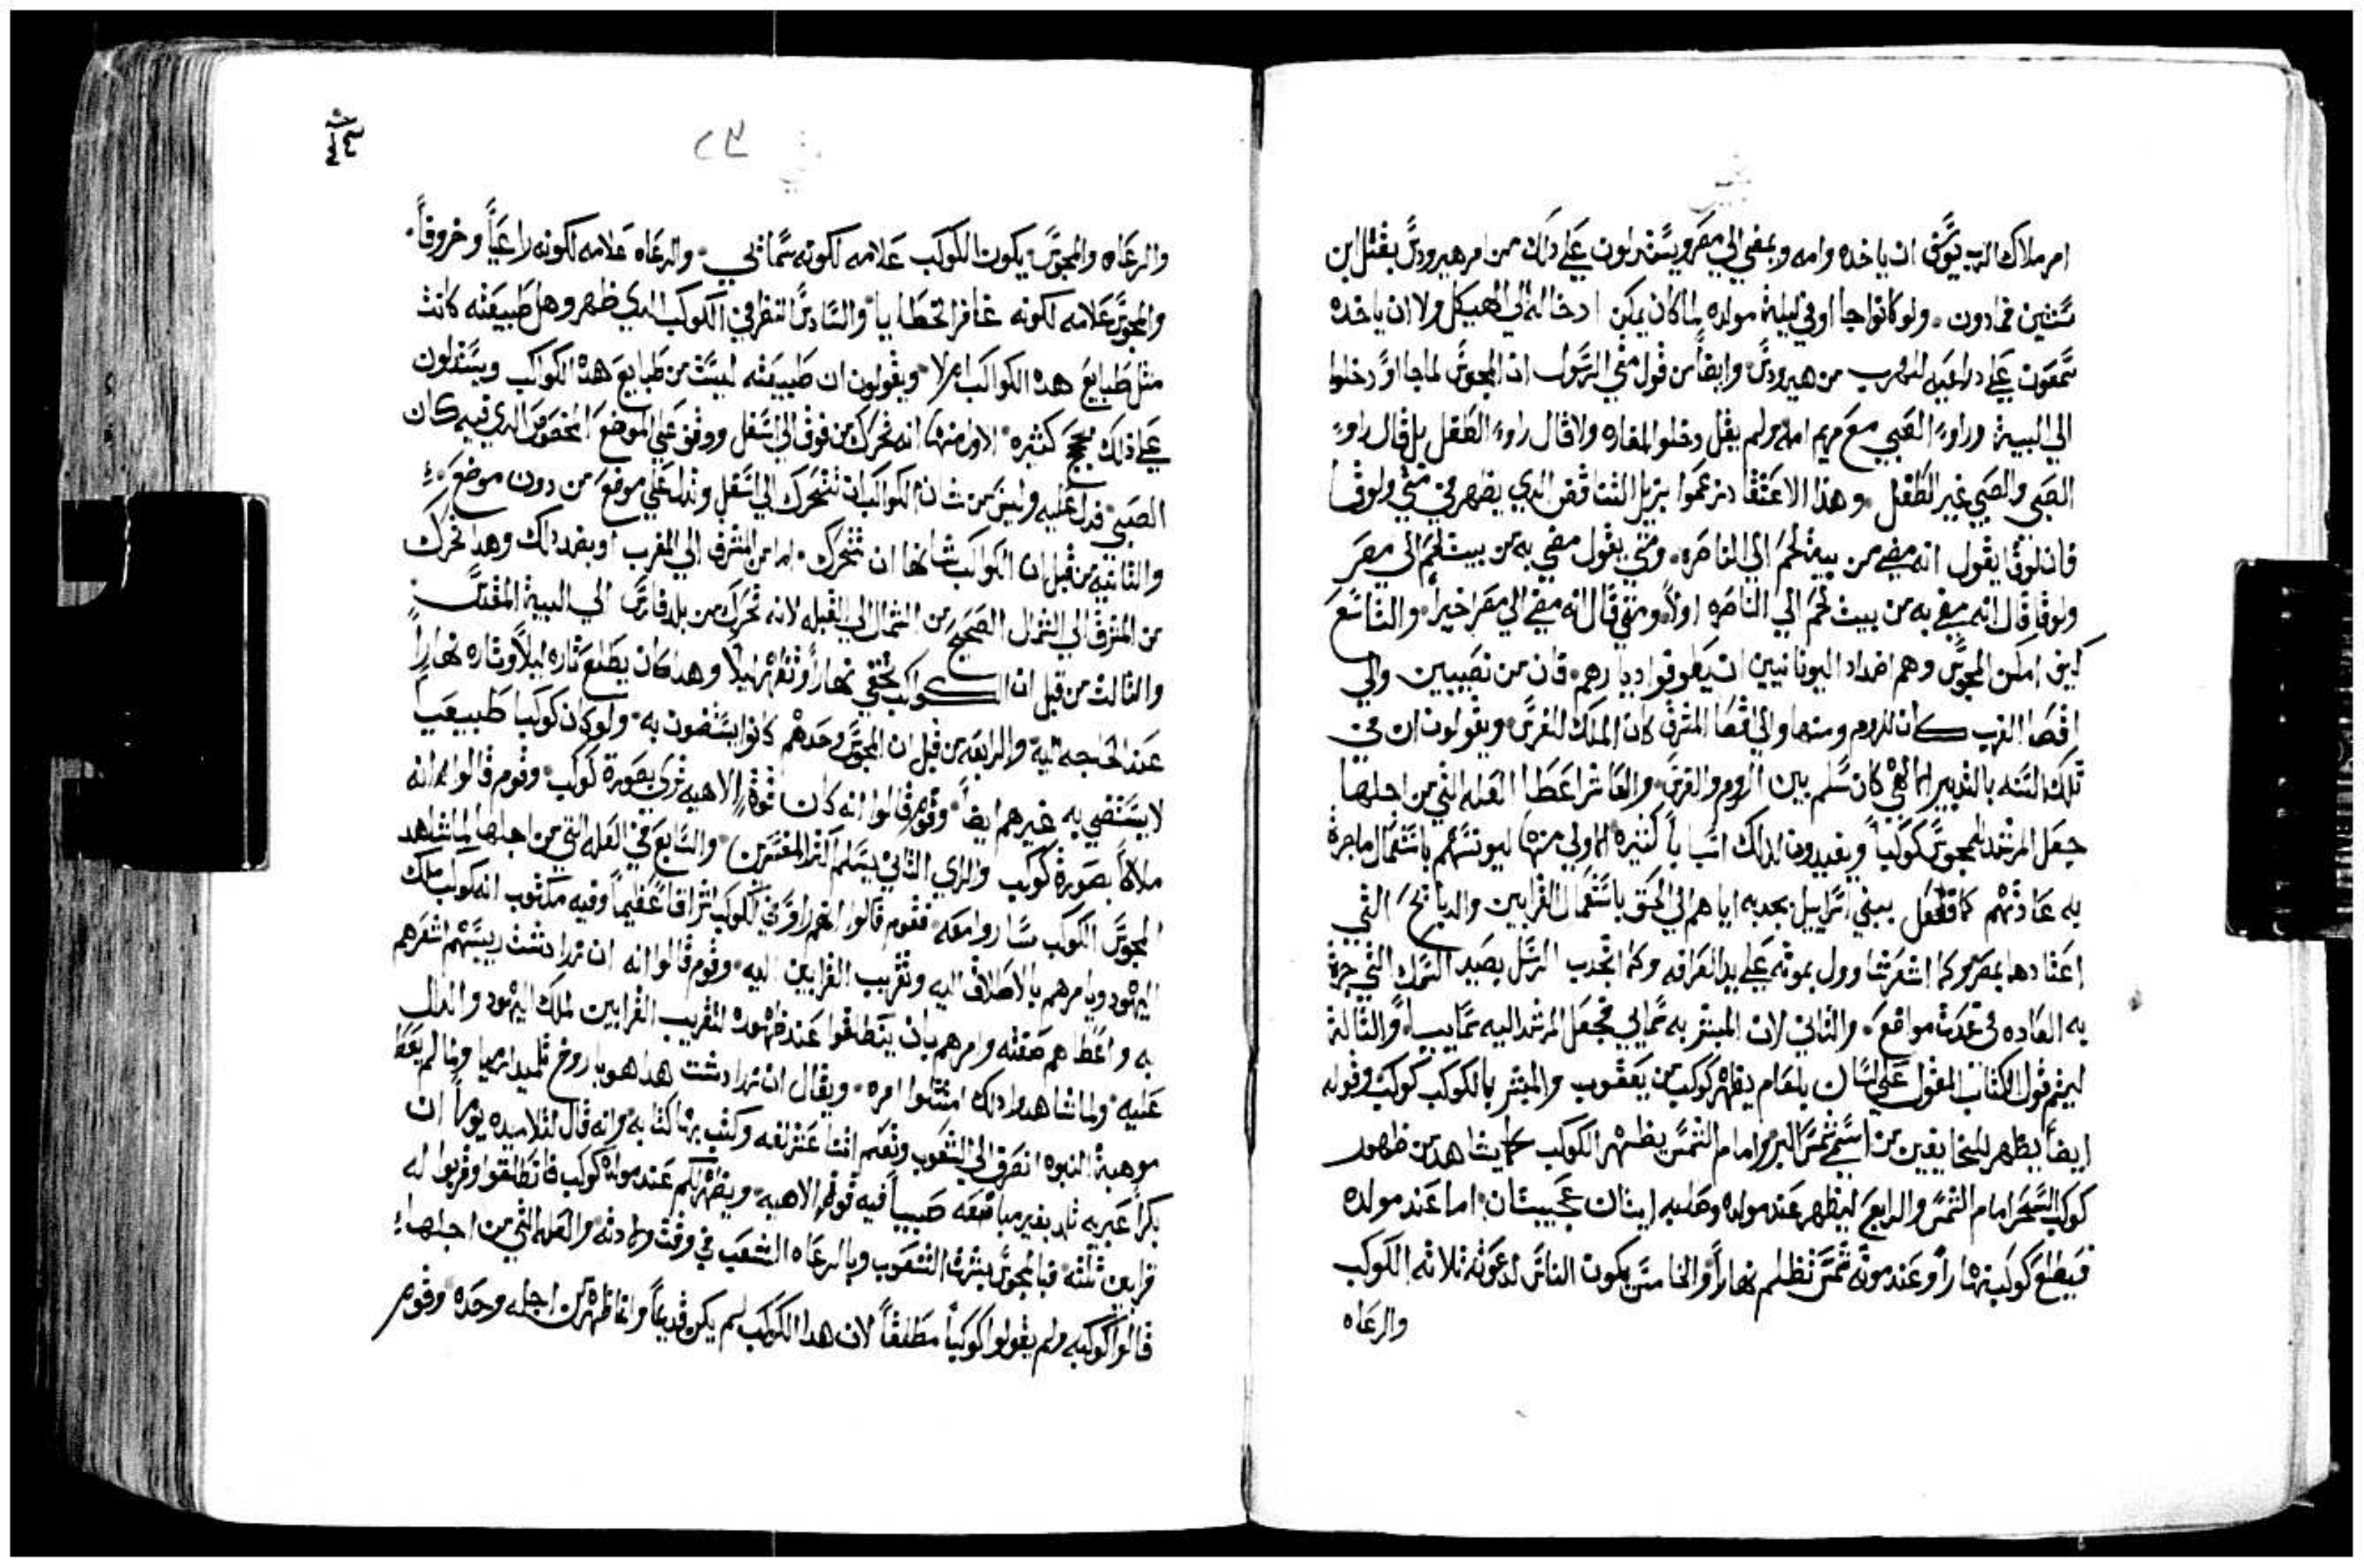 امر ملاك الرب يوسف ان ياخده وامه ويمضي الي مصر ويستدلون علي دلك من امر هيرودس بقتل ابن
سنتين فما دون. ولو كانوا جاوا في ليلة مولده لما كان يمكن ادخاله الي الهيكل ولا ان ياخده
سمعون علي دراعيه للهرب من هيرودس وايضاً من قول متي الرسول ان المجوس لما جاوا دخلوا
الي البيت وراوا الصبي مع مريم امه ولم يقل دخلوا المغاره ولا قال راوا الطفل بل قال راوا
الصبي والصبي غير الطفل. وهذا الاعتقاد زعموا يزيل التناقض الدي يظهر في متي ولوقا
فان لوقا يقول انه مضي من بيت لحم الي الناصره. ومتي يقول مضي به من بيت لحم الي مصر
ولوقا قال انه مضي به من بيت لحم الي الناصره اولاً ومتي قال انه مضي الي مصر اخيراً. والتاسع
كيف امكن المجوس وهم اضداد اليونانيين ان يطوفوا ديارهم. فان من نصيبين والي
اقصا الغرب كان للروم ومنها والي اقصا المشرق كان الملك للفرس ويقولون ان في
تلك السنه بالتدبير الالاهي كان سلم بين الروم والفرس. والعاشر اعطا العله التي من اجلها
جعل المرشد للمجوس كوكباً ويفيدون لدلك اسباباً كثيره الاولي منها ليونسهم باستعمال ما جرة
به عادتهم كما فعل ببني اسراييل بجدبه اياهم الي الحق باستعمال القرابين والدبايح التي
اعتادها بمصر وكما اشعر شاوول بموته علي يد العرافه وكما اجدب الرسل بصيد السمك التي جرة
به العاده في عدت مواضع. والثاني لان المبشر به سمايي فجعل المرشد اليه سماييا. والثالثة
ليتم قول الكتاب المقول علي لسان بلعام يظهر كوكب من يعقوب والمبشر بالكوكب كوكب وقوله
ايضاً يظهر للخايفين من اسمي شمس البر وامام الشمس يظهر الكوكب كما يشاهد من ظهور
كوكب السحر امام الشمس والرابع ليظهر عند مولده وصلبه ايتان عجيبتان. اما عند مولده
فيطلع كوكب نهاراً وعند موته شمس تظلم نهاراً والخامس يكون الناس لدعوته ثلاثه الكوكب
والرعاه
٢٣
والرعاه والمجوس. يكون الكوكب علامه لكونه سمايي. والرعاه علامه لكونه راعياً وخروفاً.
والمجوس علامه لكونه غافر الخطايا والسادس النظر في الكوكب الدي ظهر وهل طبيعته كانت
مثل طبايع هده الكواكب ام لا. ويقولون ان طبيعته ليست من طبايع هده الكواكب ويستدلون
علي ذلك بحجج كثيره. الاولي منها انه تحرك من فوق الي اسفل ووقف علي الموضع المخصوص الدي فيه كان
الصبي فدل عليه وليس من شان الكواكب ان تتحرك الي اسفل وتدل علي موضع من دون موضع.
والثانيه من قبل ان الكواكب شانها ان تتحرك. اما من المشرق الي المغرب او بضد دلك وهدا تحرك
من المشرق الي الشمال الصحيح من الشمال الي القبله لانه تحرك من بلد فارس الي البيت المقدس.
والثالث من قبل ان الكواكب تختفي نهاراً وتظهر ليلاً وهدا كان يطلع تاره ليلاً وتاره نهاراً
عند الحاجه اليه والرابعه من قبل ان المجوس وحدهم كانوا يستضون به. ولو كان كوكبا طبيعيا
لا يستضي به غيرهم ايضاً. وقوم قالوا انه كان قوة الاهيه تري بصورة كوكب. وقوم قالوا انه
ملاك بصورة كوكب والراي الثاني يسلم اكثر المفسرين والسابع في العله التي من اجلها لما شاهد
المجوس الكوكب ساروا معه. فقوم قالوا انهم راوا في الكوكب اشراقاً عظيماً وفيه مكتوب انه كوكب ملك
اليهود ويامرهم بالانطلاق اليه وتقريب القرابين اليه. وقوم قالوا انه ان زرادشت ريسهم اشعرهم
به واعطاهم صفته وامرهم بان ينطلقوا عند ظهوره لتقريب القرابين لملك اليهود والدال
عليه. ولما شاهدوا دلك امتثلوا امره. ويقال ان زرادشت هدا هو باروخ تلميد ارميا ولما لم يعط
موهبة النبوه انصرف الي الشعوب وتعلم اثنا عشر لغه وكتب بها كتابه وانه قال لتلاميده يوماً ان
بكراً عبريه تلد بغير مباضعه صبياً فيه قوة الاهيه. ويظهر لكم عند مولده كوكب فانطلقوا وقربوا له
قرابين ثلثه. فبالمجوس بشرت الشعوب وبالرعاه الشعب في وقت ولادته والعله التي من اجلها
قالوا كوكبه ولم يقولوا كوكباً مطلقاً لان هدا الكوكب لم يكن قديماً وانما ظهر من اجله وحده وقوم